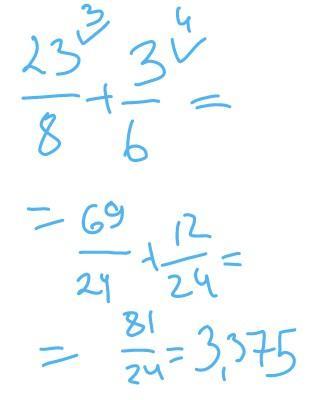 23/8 ³✓ + 3/6 ⁴✓ =
= 69/24 + 12/24 =
= 81/24 = 3,375